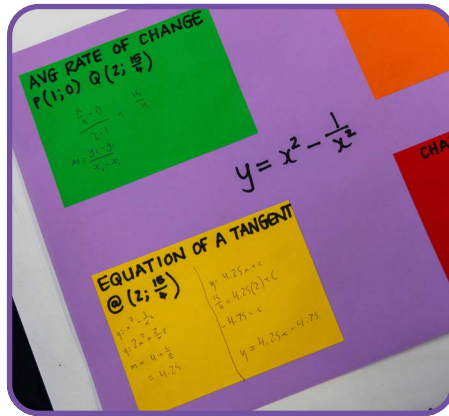 AVG RATE OF CHANGE
P(1;0) Q(2; 15/4)
15/4 - 0
2-1
= 15/4
m = y₂-y₁
x₂-x₁
y = x² - 1/x²
CHA
EQUATION OF A TANGENT
@ (2; 15/4)
y = x² - 1/x²
m = 4 +
= 4.25
y = 4.25x + c
15/4 = 4.25(2) + c
-4.75 = c
y = 4.25x - 4.75